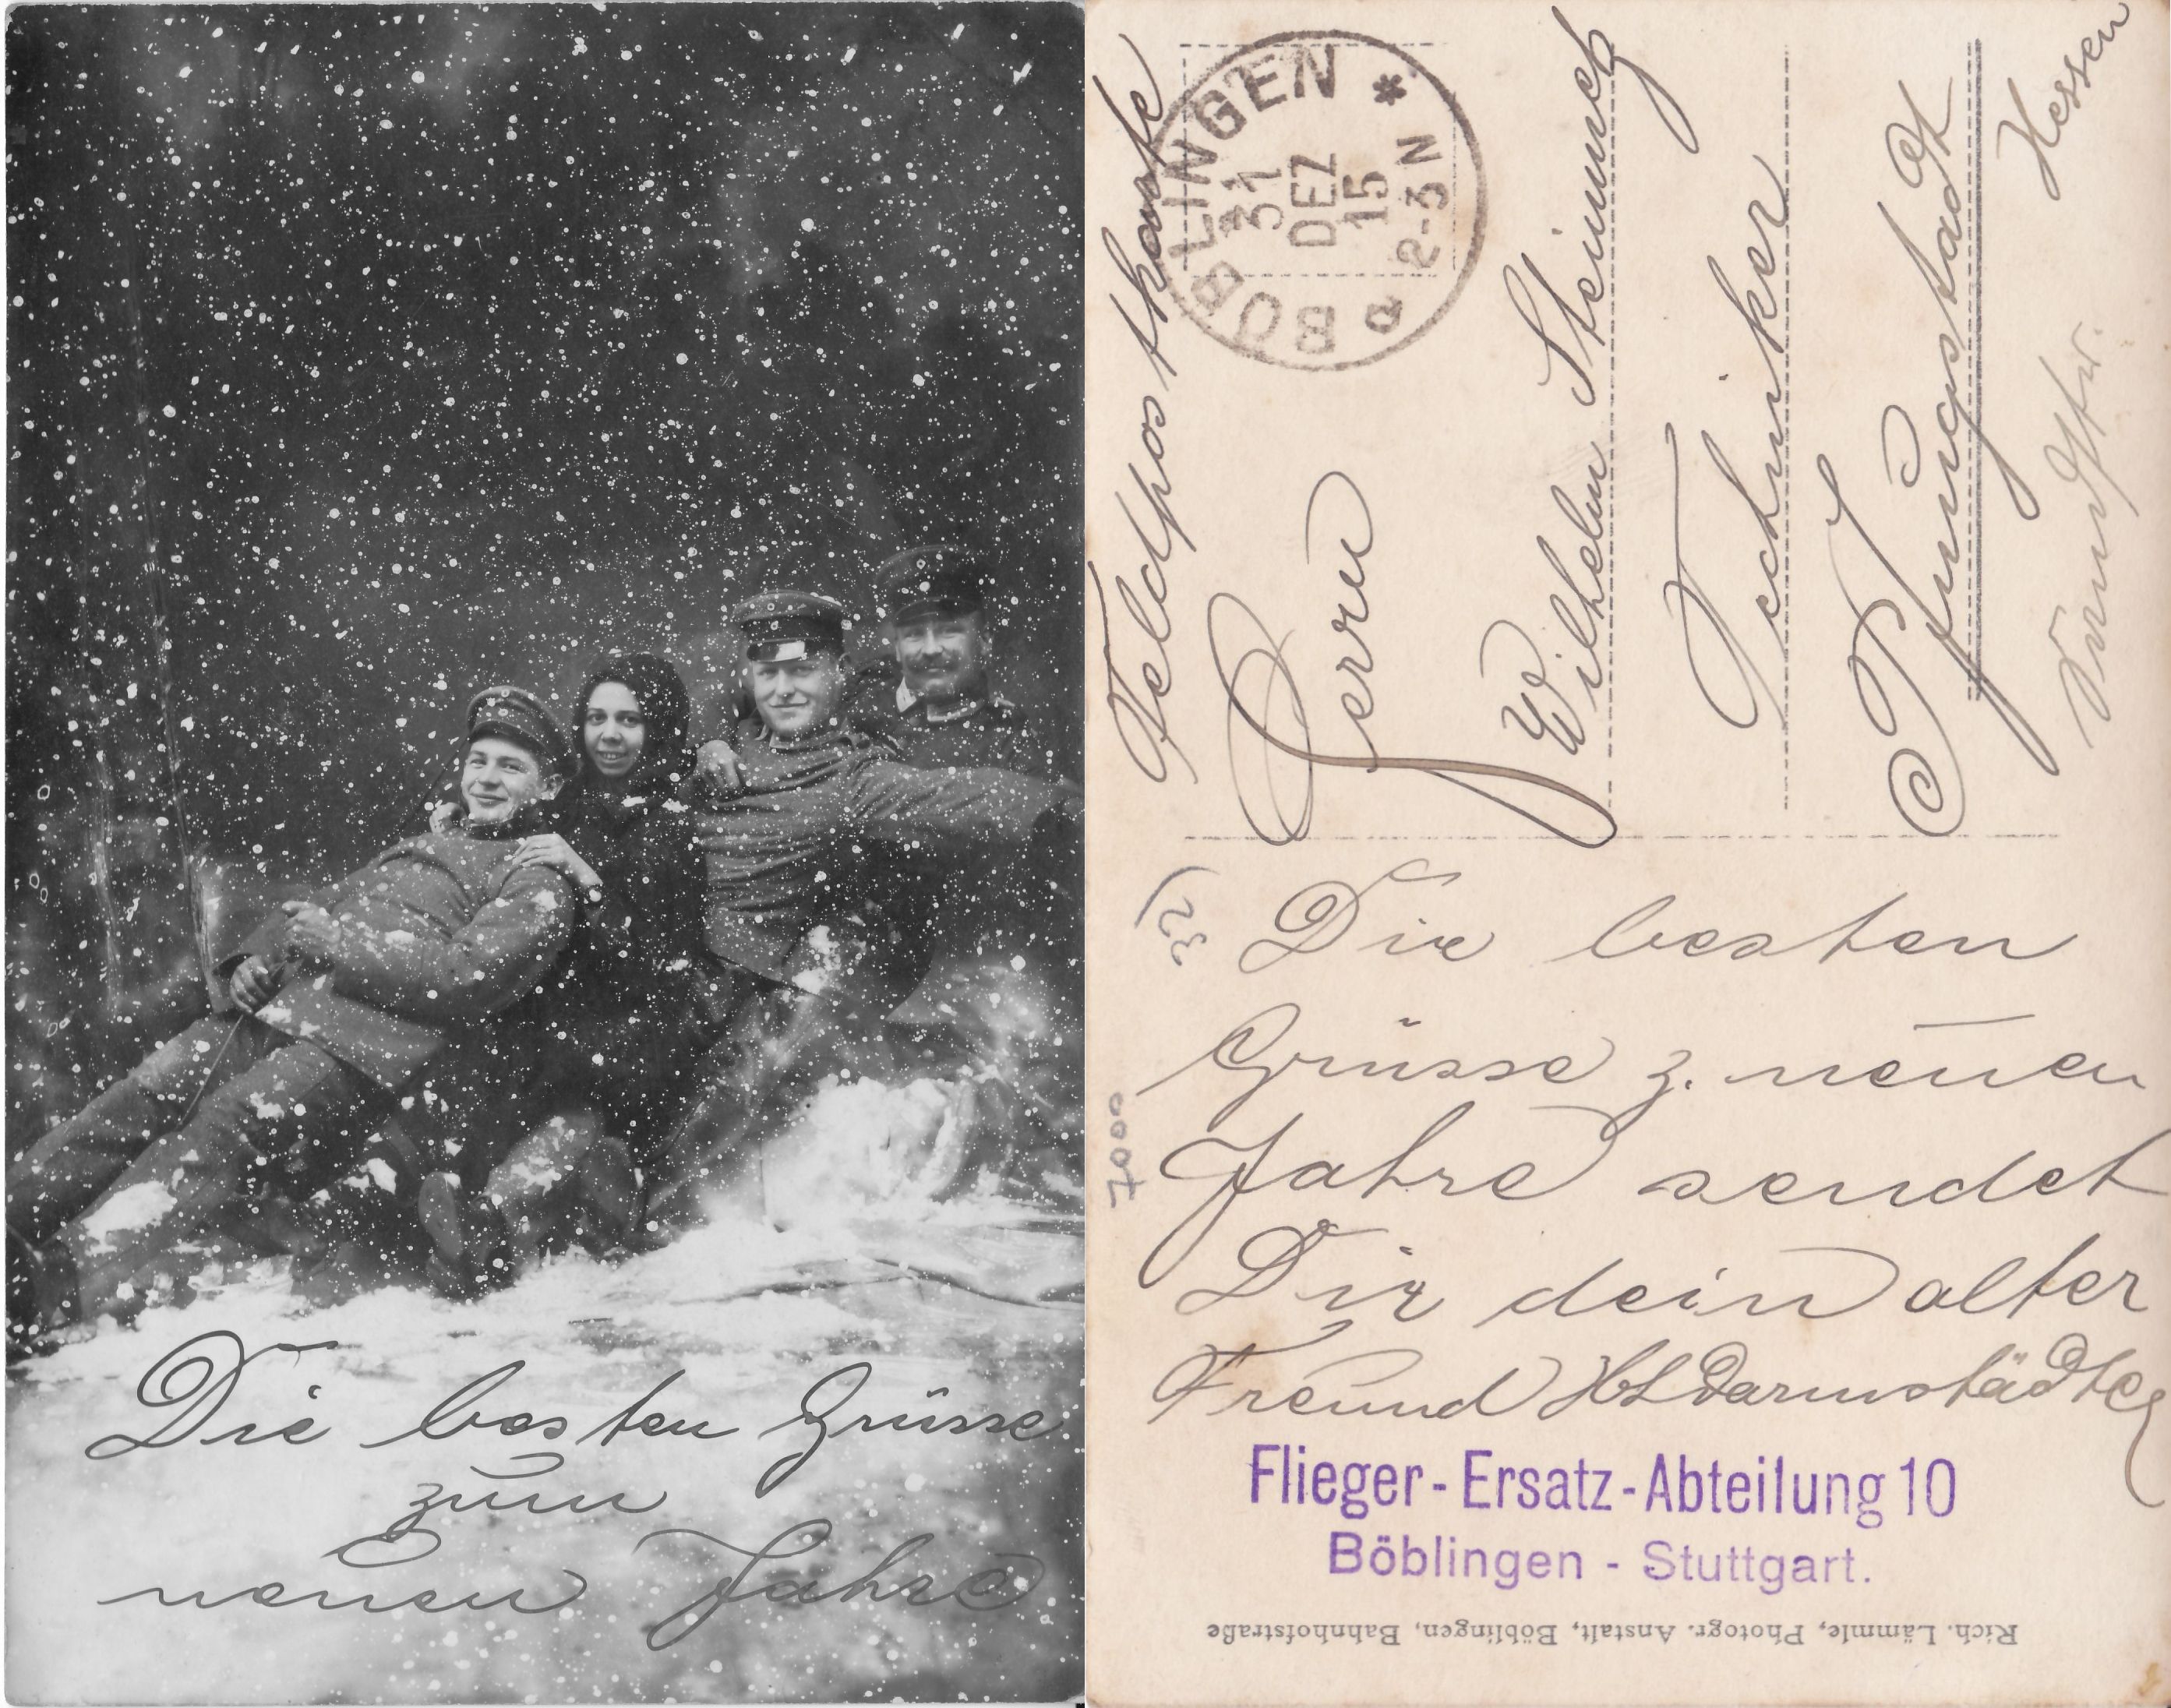 Die besten Grüsse
zum
neuen Jahre
Feldpostkarte
BÖBLINGEN *
31
DEZ
15
2-3 N
Herrn
Wilhelm
Techniker
Pfungstadt
Hessen
Die besten
Grüsse z. neuen
Jahre sendet
Dir dein alter
Freund Darmstädter
Flieger-Ersatz-Abteilung 10
Böblingen - Stuttgart.
Rich. Lämmle, Photogr. Anstalt, Böblingen, Bahnhofstraße
7000